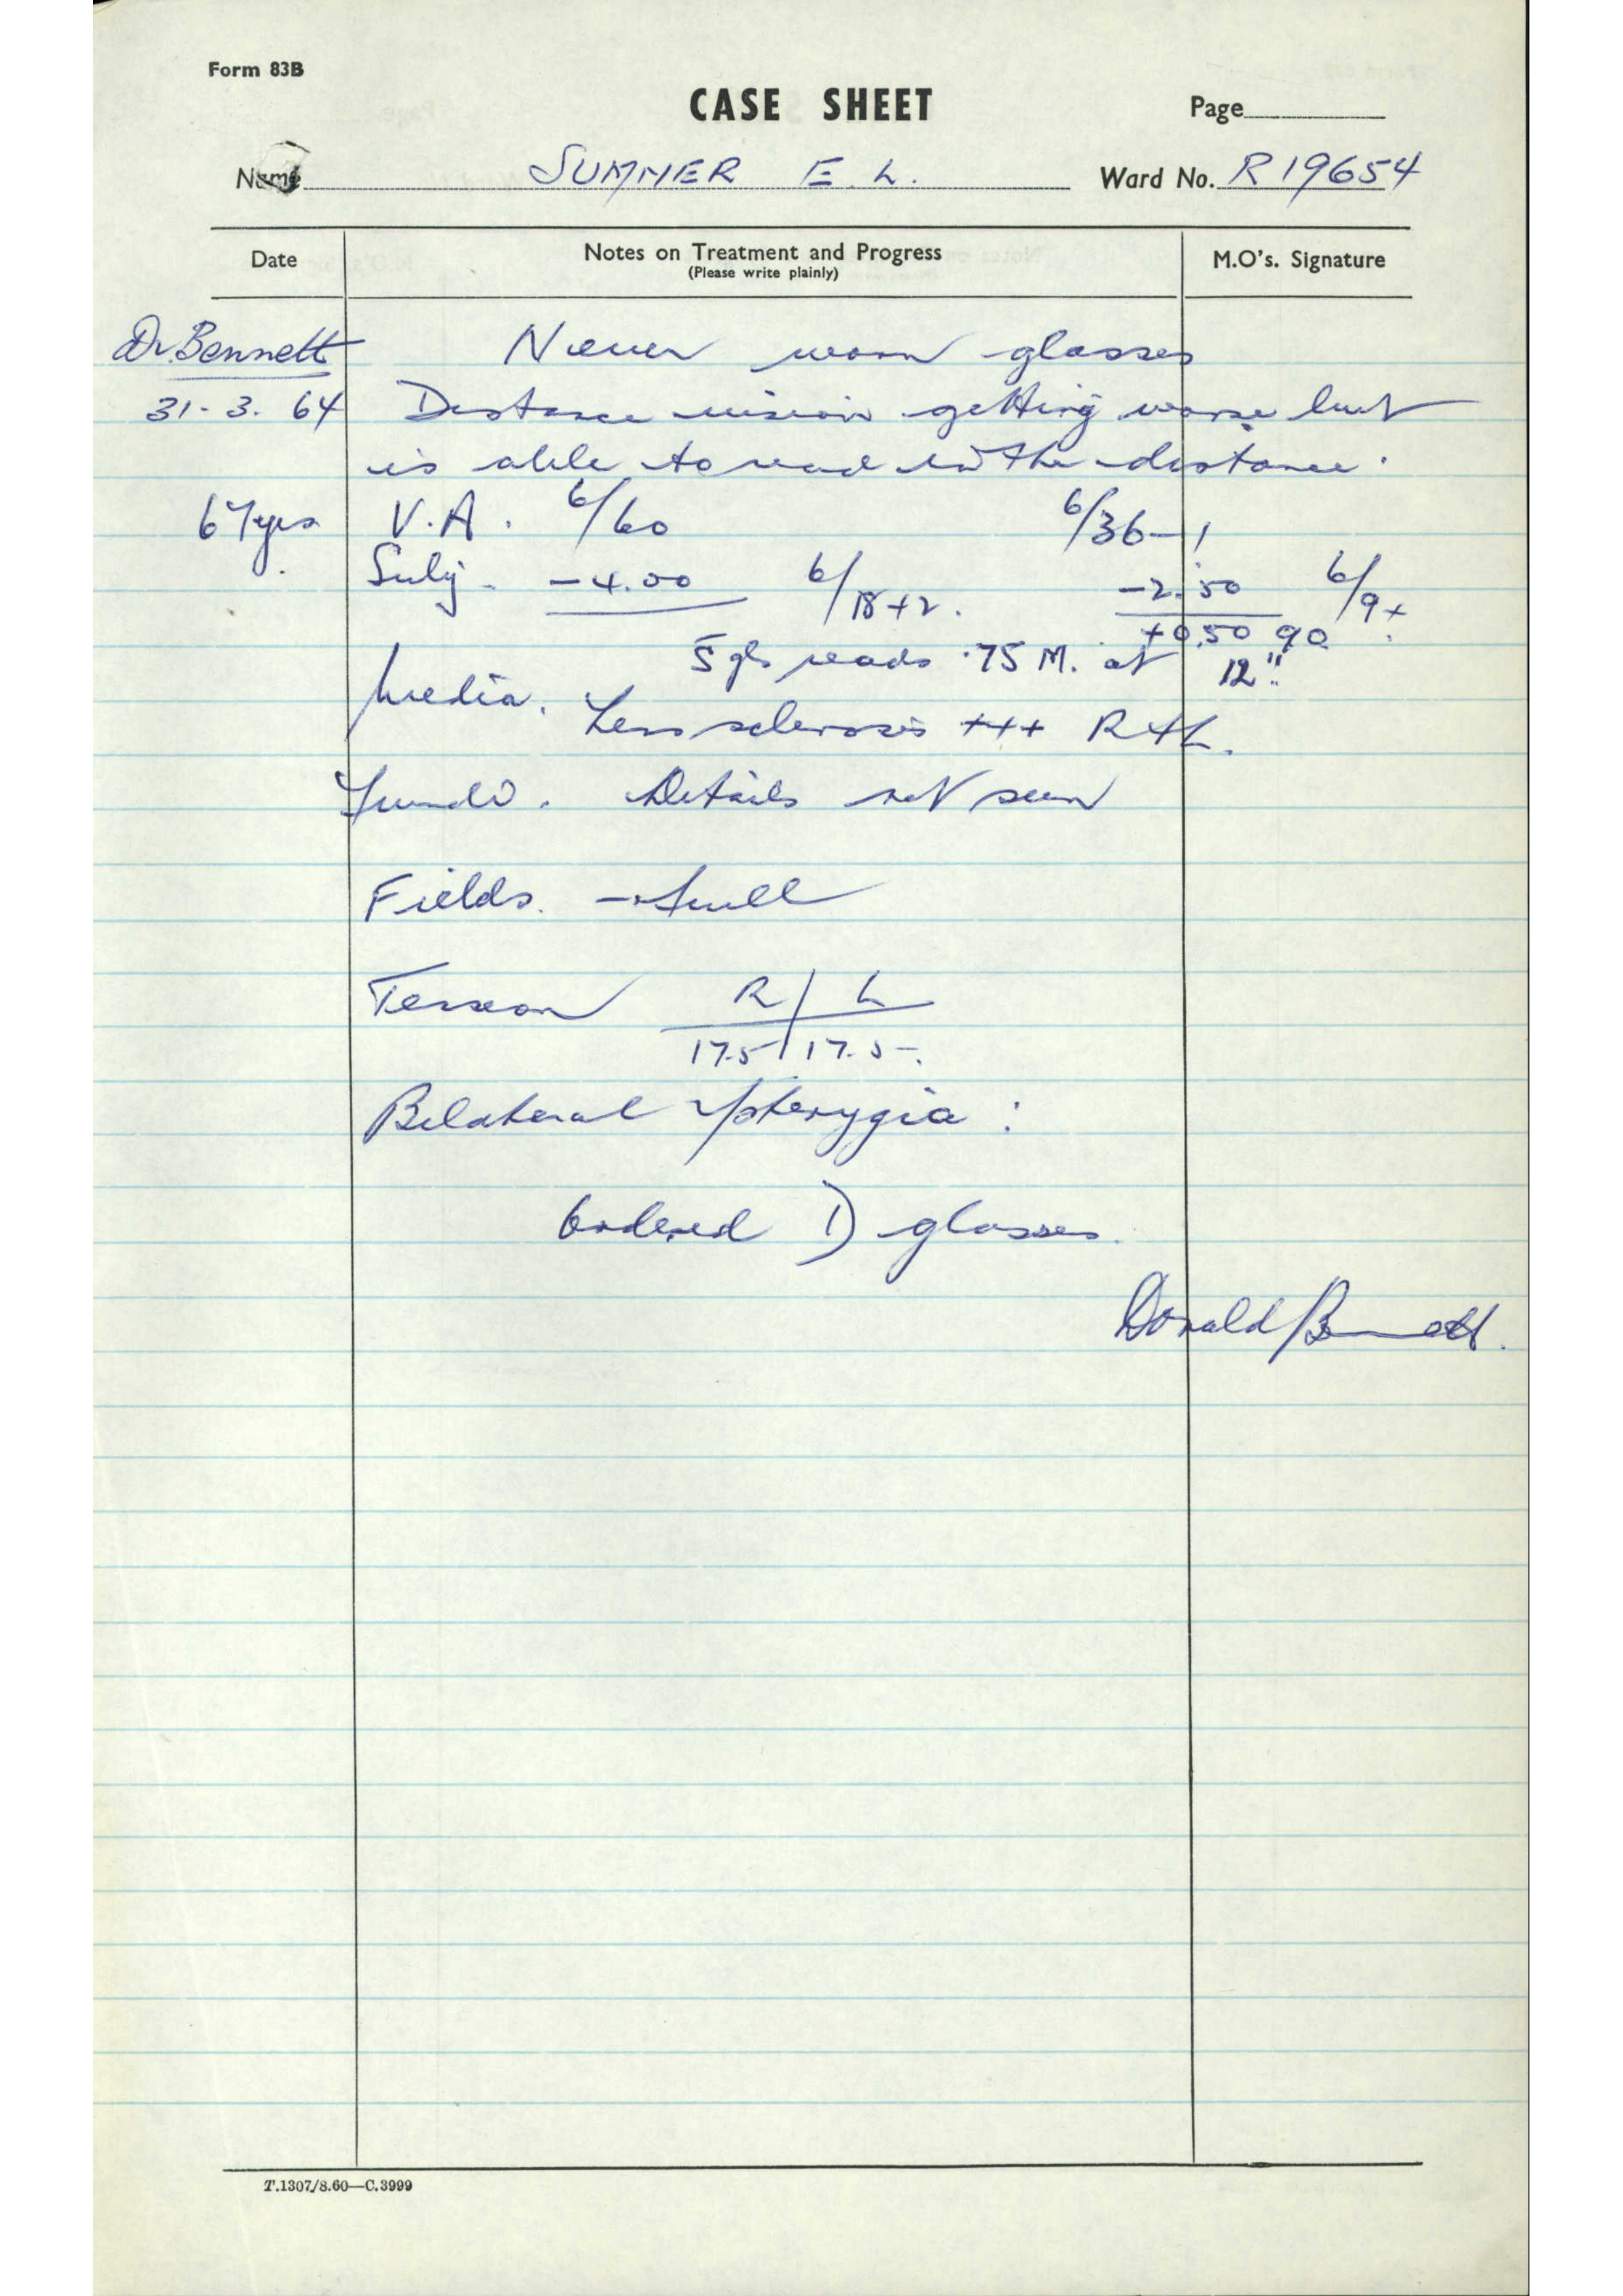 Form 83B
CASE SHEET
Page
Name SUMMER E. L. Ward No. R19654
Date Notes on Treatment and Progress M.O's. Signature
(Please write plainly)
Dr. Bennett Never worn glasses
31-3.64 Distance vision getting worse but
is able to read in the distance.
67yrs V.A. 6/60 6/36-1
Subj. -4.00 6/18+2. -2.50 6/9+
+0.50 90
reads .75 M. at 12"
Media. Lens sclerosis +++ R+L.
Fundi. Details not seen
Fields. - full
Tension R L
17.5 17.5
Bilateral pterygia:
Ordered D glasses.
Donald Bennett.
T.1307/8.60—C.3999